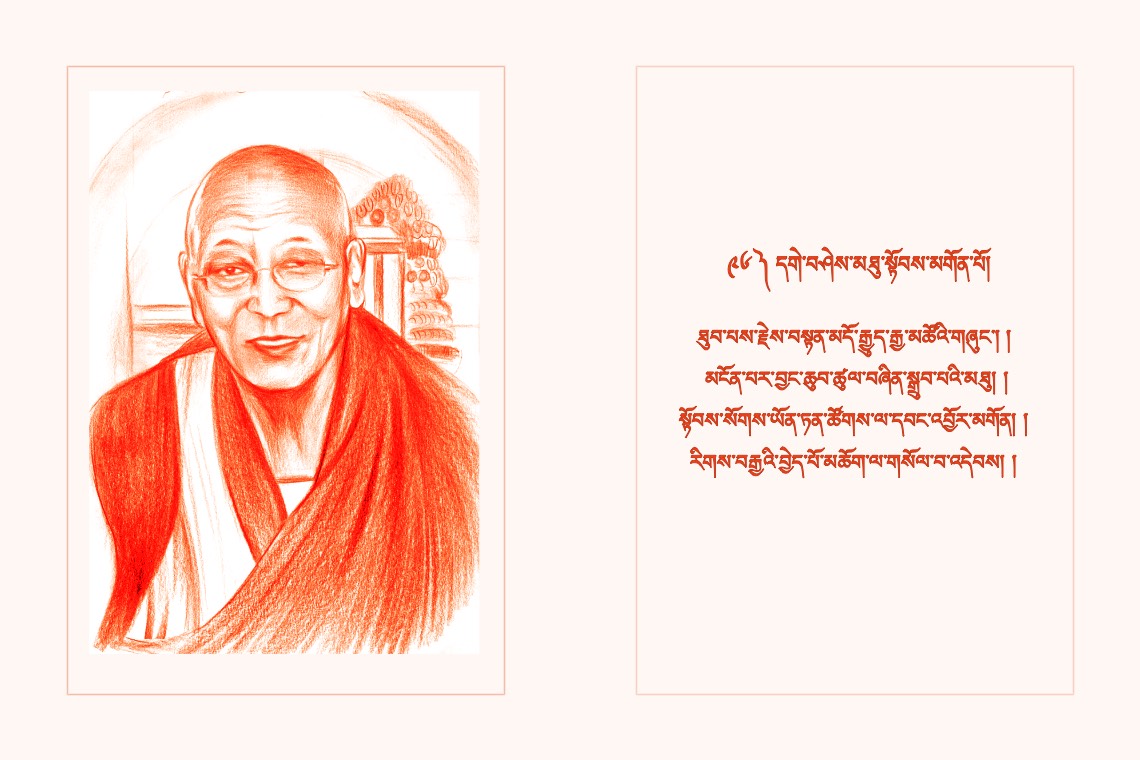 ༩༦ ༽ དགེ་བཤེས་མཐུ་སྟོབས་མགོན་པོ།
ཐུབ་པས་རྗེས་བསྟན་མདོ་རྒྱུད་རྒྱ་མཚོའི་གཞུང་། །
མངོན་པར་བྱང་ཆུབ་ཚུལ་བཞིན་སྒྲུབ་པའི་མཐུ། །
སྟོབས་སོགས་ཡོན་ཏན་ཚོགས་ལ་དབང་འབྱོར་མགོན། །
རིགས་བརྒྱའི་བྱེད་པོ་མཆོག་ལ་གསོལ་བ་འདེབས། །